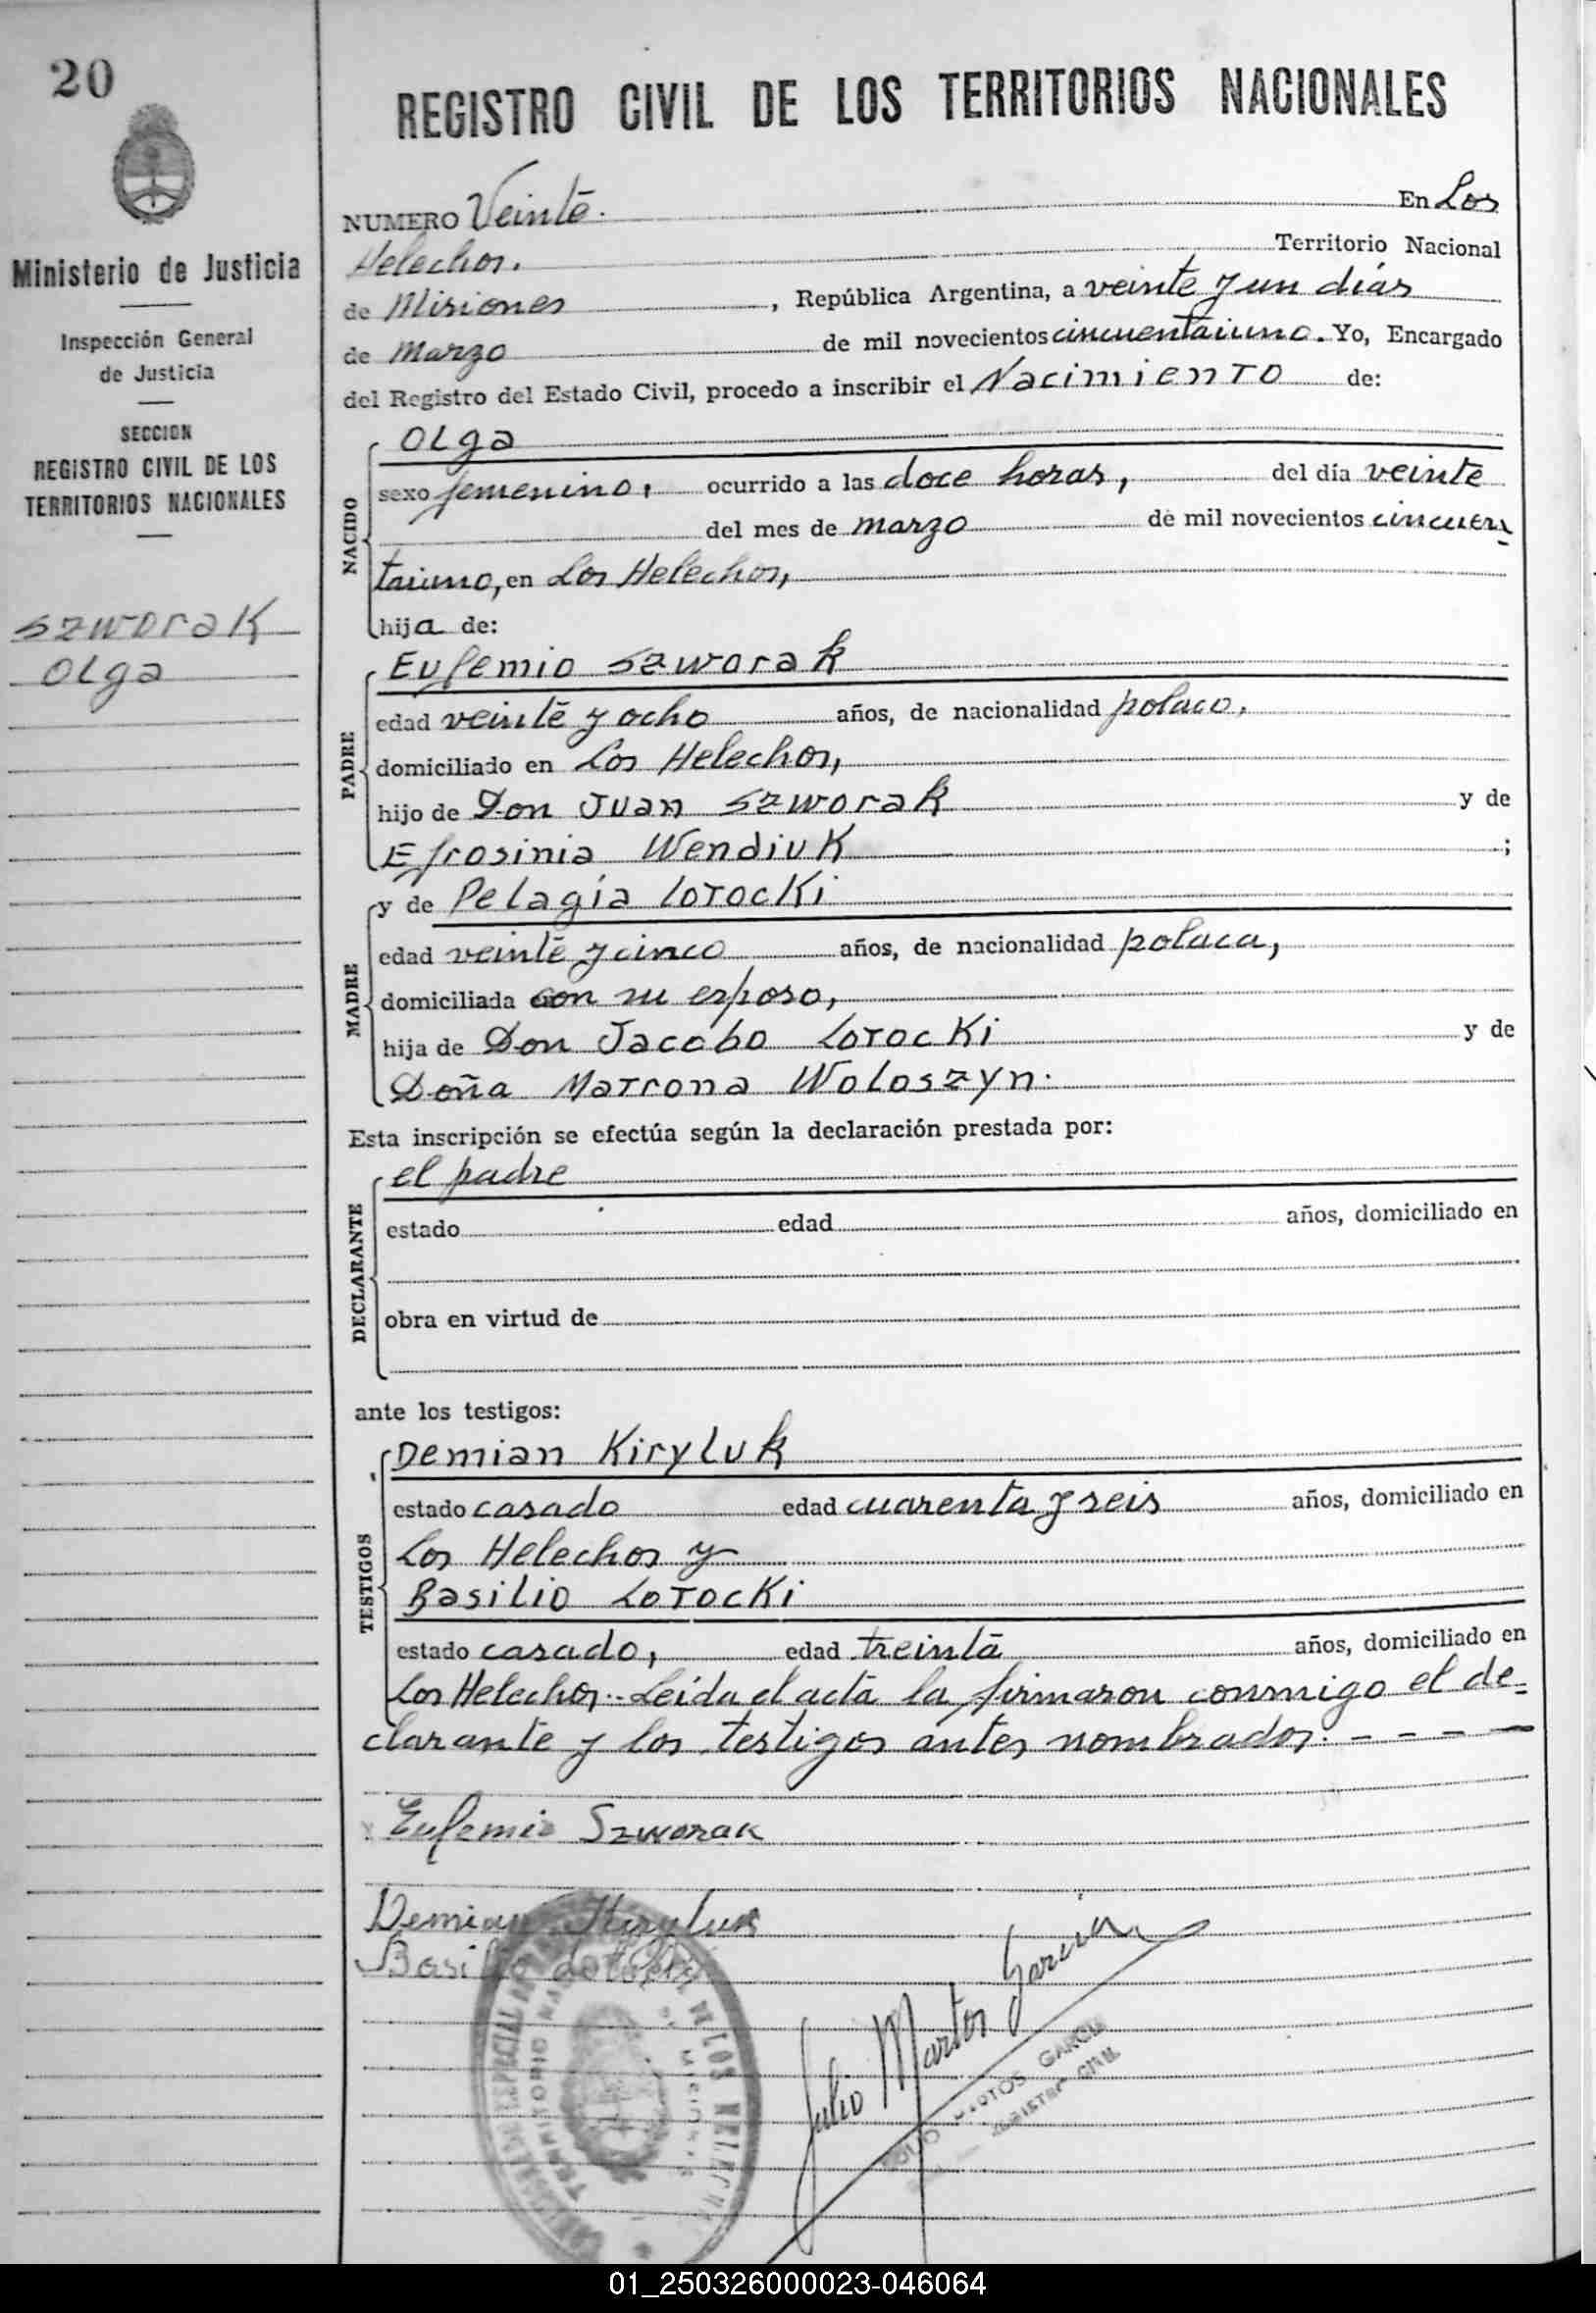 20
Ministerio de Justicia
Inspección General
de Justicia
SECCION
REGISTRO CIVIL DE LOS
TERRITORIOS NACIONALES
Szworak
Olga
REGISTRO CIVIL DE LOS TERRITORIOS NACIONALES
NUMERO Veinte. En Los
Helechos. Territorio Nacional
de Misiones, República Argentina, a veinte y un días
de Marzo de mil novecientos cincuentaiuno. Yo, Encargado
del Registro del Estado Civil, procedo a inscribir el Nacimiento de:
NACIDO
Olga
sexo femenino, ocurrido a las doce horas, del día veinte
del mes de marzo de mil novecientos cincuen-
taiuno, en Los Helechos,
hija de:
PADRE
Eufemio Szworak
edad veinte y ocho años, de nacionalidad polaco,
domiciliado en Los Helechos,
hijo de Don Juan Szworak y de
Efrosinia Wendiuk ;
MADRE
y de Pelagia Lotocki
edad veinte y cinco años, de nacionalidad polaca,
domiciliada con su esposo,
hija de Don Jacobo Lotocki y de
Doña Matrona Woloszyn.
Esta inscripción se efectúa según la declaración prestada por:
DECLARANTE
el padre
estado edad años, domiciliado en
obra en virtud de
ante los testigos:
TESTIGOS
Demian Kiryluk
estado casado edad cuarenta y seis años, domiciliado en
Los Helechos y
Basilio Lotocki
estado casado, edad treinta años, domiciliado en
Los Helechos.- Leída el acta la firmaron conmigo el de=
clarante y los testigos antes nombrados. - - - -
Eufemio Szworak
Demian Kiryluk
Basilio Lotocki
Julio Martos Garcia
JULIO MARTOS GARCIA
REGISTRO CIVIL
DE LOS HELECHOS
MISIONES
01_250326000023-046064